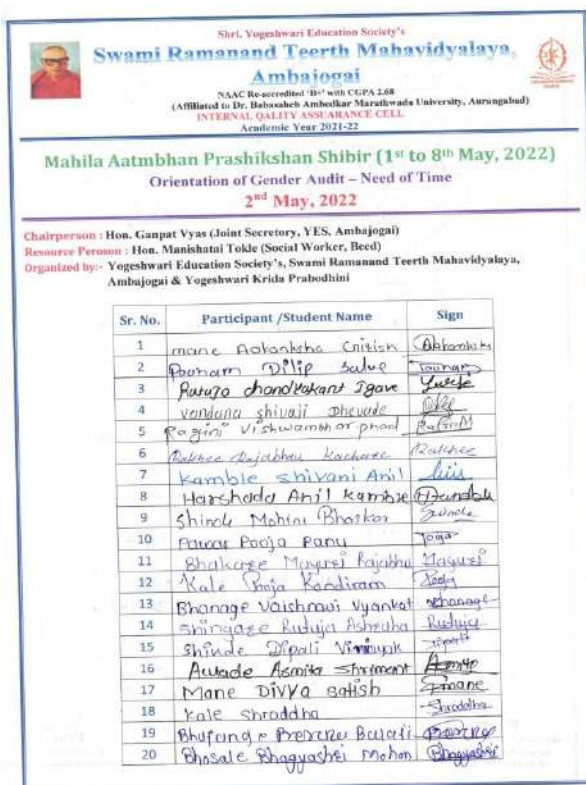 Shri. Yogeshwari Education Society's
Swami Ramanand Teerth Mahavidyalaya,
Ambajogai
NAAC Re-accredited 'B+' with CGPA 2.68
(Affiliated to Dr. Babasaheb Ambedkar Marathwada University, Aurangabad)
INTERNAL QALITY ASSUARANCE CELL
Academic Year 2021-22
Mahila Aatmbhan Prashikshan Shibir (1st to 8th May, 2022)
Orientation of Gender Audit – Need of Time
2nd May, 2022
Chairperson : Hon. Ganpat Vyas (Joint Secretory, YES, Ambajogai)
Resource Peroson : Hon. Manishatai Tokle (Social Worker, Beed)
Organized by:- Yogeshwari Education Society's, Swami Ramanand Teerth Mahavidyalaya,
Ambajogai & Yogeshwari Krida Prabodhini
Sr. No. Participant /Student Name Sign
1 mane Aakanksha
2 Poonam Dilip Salve Poonam
3 Rutuja chandrakant Igave
4 vandana shivaji Dhevade
5 Ragini Vishwambhar phad Ragini
6 Rakhee Rajabhau Kachare Rakhee
7 Kamble Shivani Anil
8 Harshada Anil Kamble
9 Shinde Mohini Bhaskar Shinde
10 Pawar Pooja Panu Pooja
11 Bhakare Mayuri Rajabhu Mayuri
12 Kale Pooja Kondiram Pooja
13 Bhanage Vaishnavi Vyankat Bhanage
14 Shingare Rutuja Rutuja
15 Shinde Dipali Vinayak Dipali
16 Awade Asmita Shrimant Asmita
17 Mane Divya Satish
18 Kale Shraddha Shraddha
19 Balaji
20 Bhosale Bhagyashri Mohan Bhagyashri